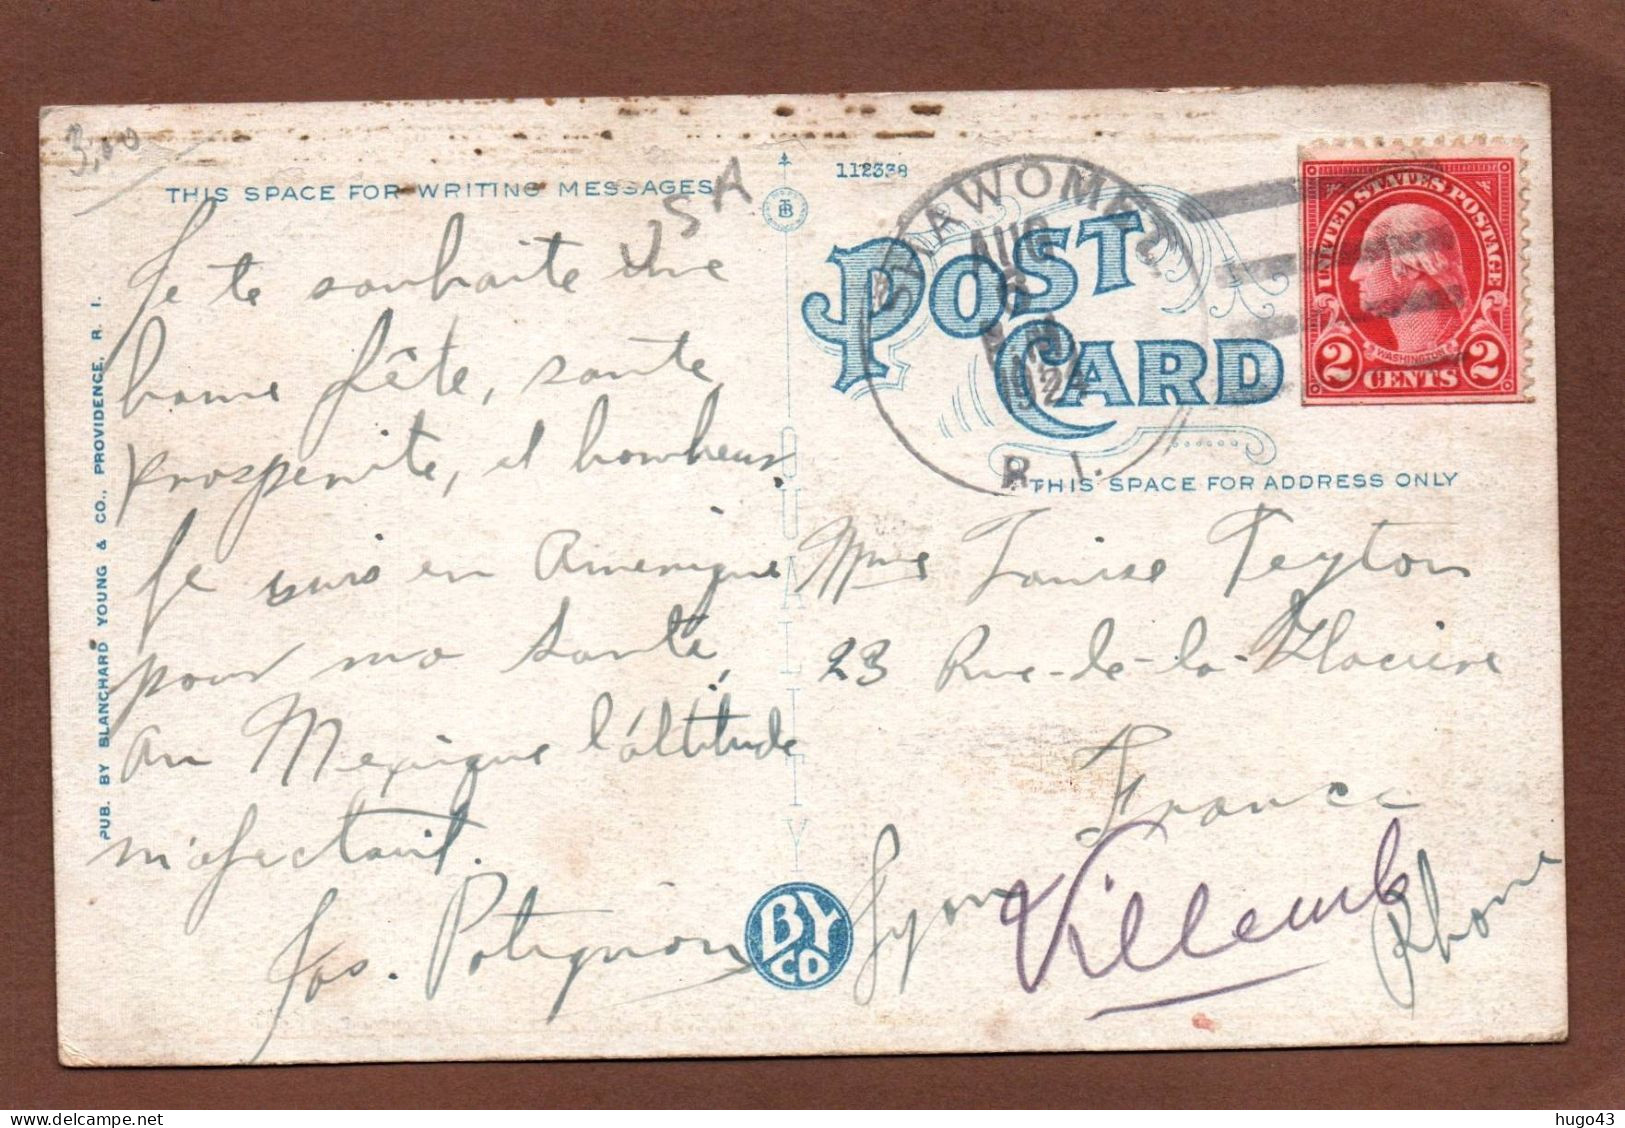 3,00
THIS SPACE FOR WRITING MESSAGES
USA
Je te souhaite une
bonne fête, sante,
prosperite, et bonheur
Je suis en Amerique
pour ma santé,
au Mexique l'altitude
m'afectait.
Jos. Potignon
PUB. BY BLANCHARD YOUNG & CO., PROVIDENCE, R. I.
QUALITY
BY CO
112338
POST CARD
SHAWOMET
AUG
1924
R. I.
UNITED STATES POSTAGE
WASHINGTON
2 CENTS 2
THIS SPACE FOR ADDRESS ONLY
Mme Louise Peyton
23 Rue-de-la-Glaciere
France
Lyon
Villeurb
Rhone
hugo43